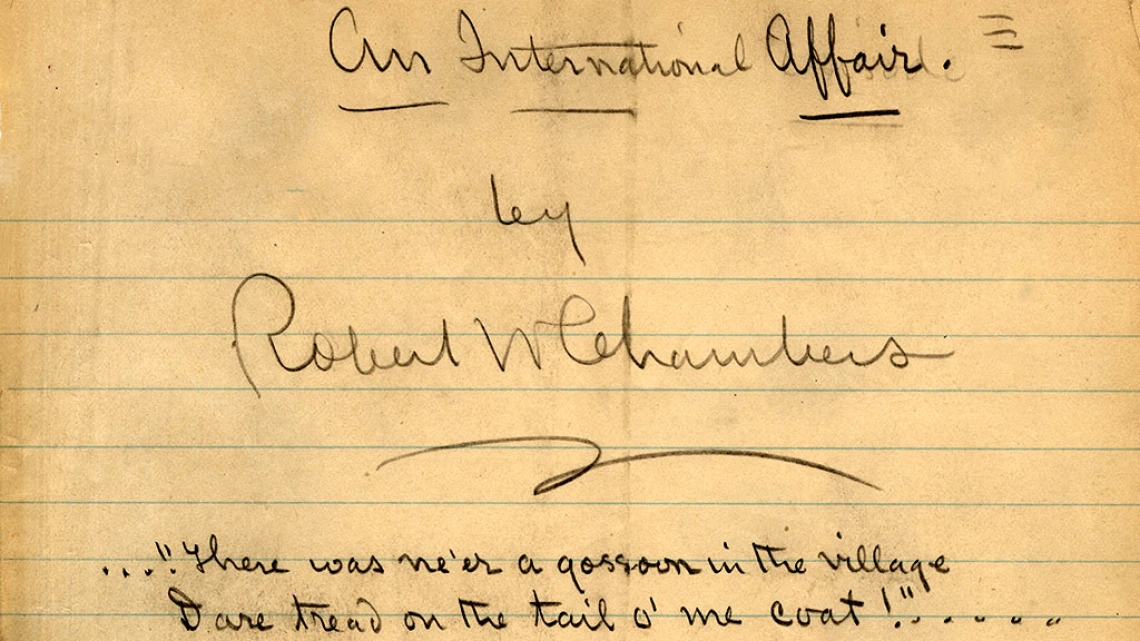 An International Affair.
by
Robert W Chambers
...."There was ne'er a gossoon in the village
Dare tread on the tail o' me coat!"......